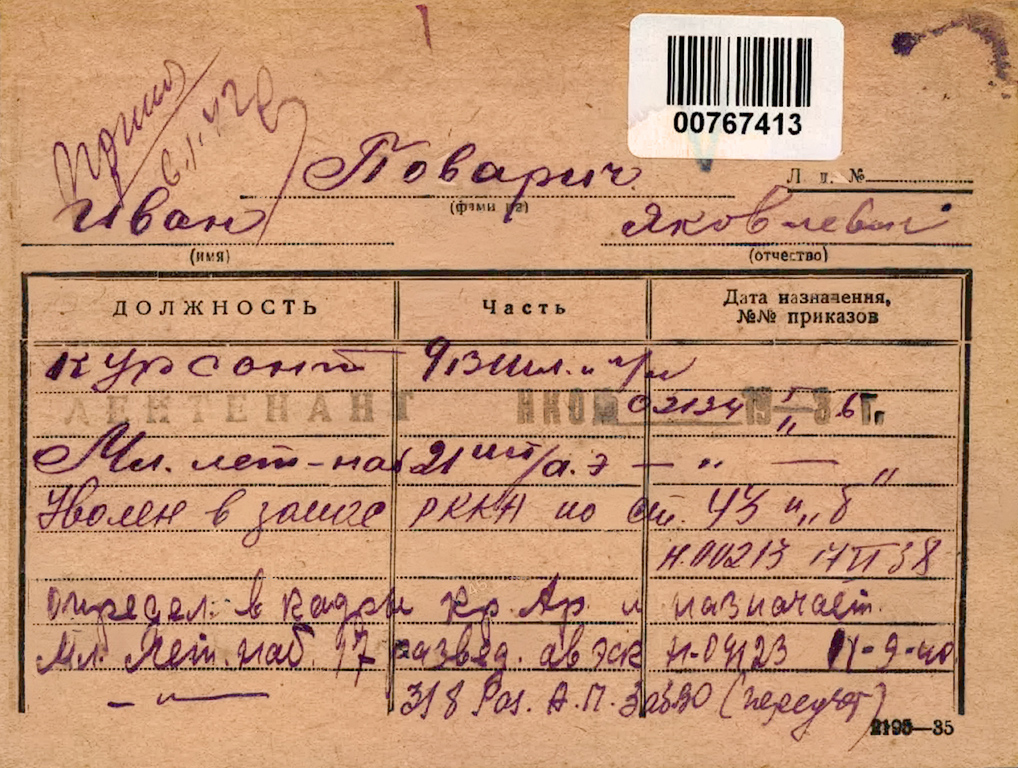 00767413
Поварич
Л. д. №
(фамилия)
Иван Яковлевич
(имя) (отчество)
ДОЛЖНОСТЬ Часть Дата назначения, №№ приказов
курсант 9 в ш л. и
ЛЕЙТЕНАНТ НКО 02124 19—36 г.
Мл. лет-наб 21 шт/а. э — „ — „
Уволен в запас РККА по ст. 43 п „б“
Н. 00213 17 II 38
определ. в кадры Кр. Ар. и назначает.
Мл. Лет. наб. 17 развед. ав эск Н-04123 11-9-40
— „ — 318 Раз. А. П. (переучет)
2195—35